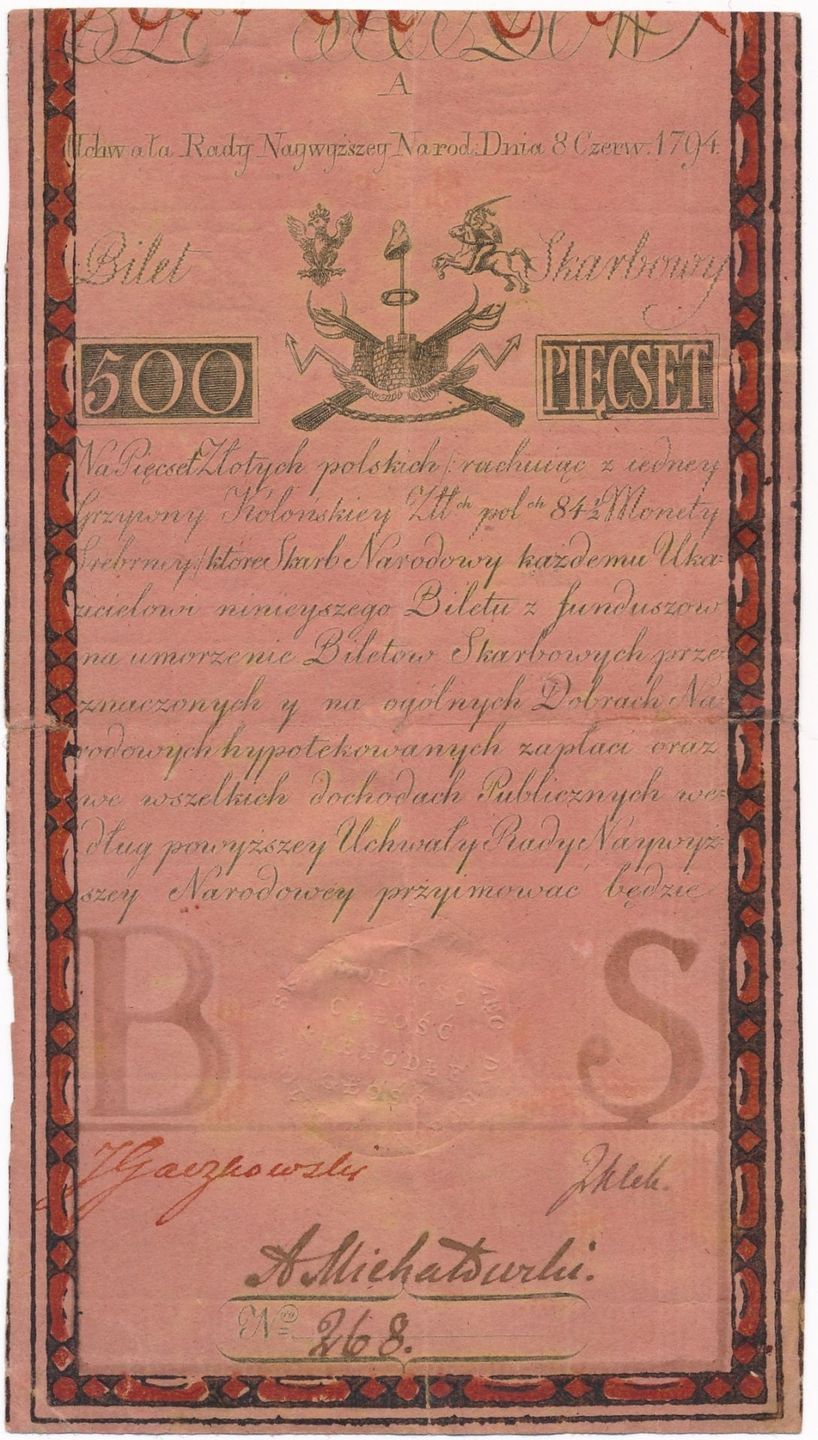 A
Uchwała Rady Naywyższey Narod. Dnia 8 Czerw. 1794.
Bilet Skarbowy
500 PIĘCSET
Na Pięcset Złotych polskich /: rachuiąc z iedney
Grzywny Kolońskiey Złł ch pol ch 84½ Monety
Srebrney :/ które Skarb Narodowy każdemu Uka-
zicielowi ninieyszego Biletu z funduszow
na umorzenie Biletow Skarbowych prze-
znaczonych y na ogólnych Dobrach Na-
rodowych hypotekowanych zapłaci oraz
we wszelkich dochodach Publicznych we-
dług powyższey Uchwały Rady Naywyż-
szey Narodowey przyimować będzie
B S
WOLNOSC
CAŁOŚĆ
NIEPODLE
GŁOŚĆ
J Gaczkowski
A Michałowski.
No 268.